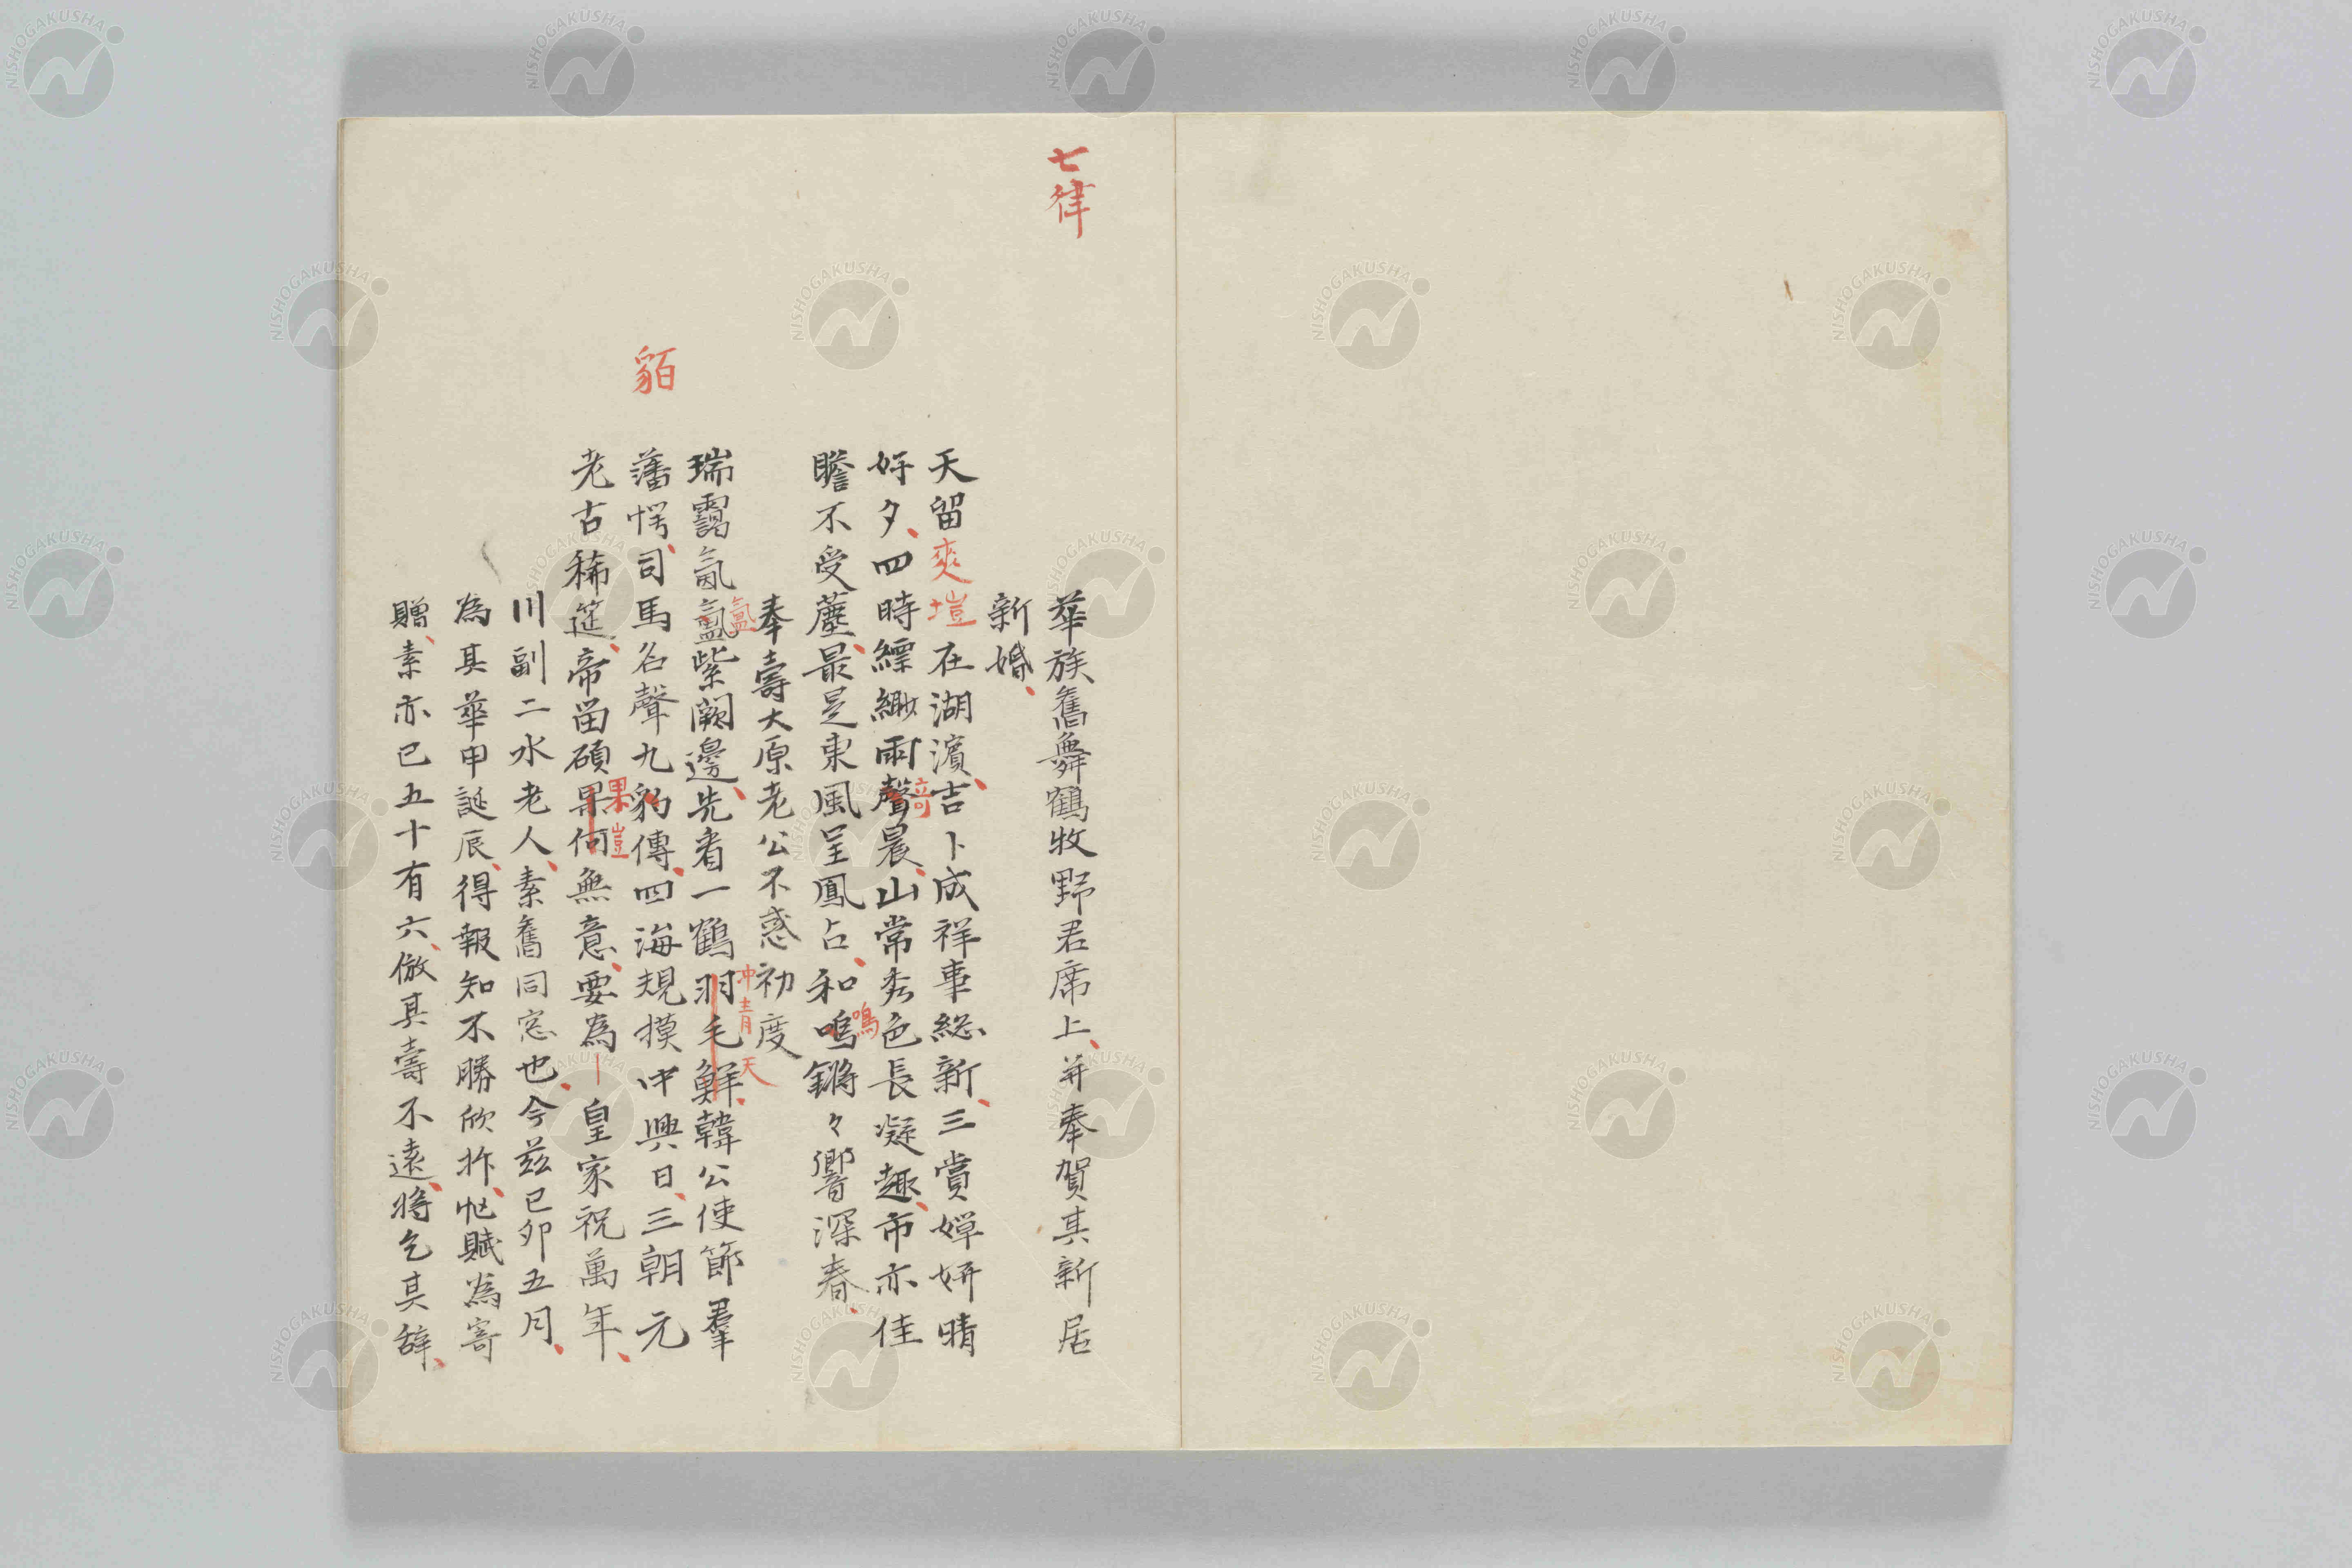 七律
華族舊舞鶴牧野君席上、并奉賀其新居
新婚、
天留爽塏在湖濱、吉卜成祥事総新、三賞嬋妍晴
好夕、四時縹緲雨聲晨、山常秀色長凝趣、市亦佳
瞻不受塵、最是東風呈鳳占、和鳴鏘々響深春、
奇
鳴
奉壽大原老公不惑初度
瑞靄氤氳紫闕邊、先看一鶴羽毛鮮、韓公使節羣
氳
冲青天
藩愕、司馬名聲九豹傳、四海規摸中興日、三朝元
貊
老古稀筵、帝留碩果何無意、要為皇家祝萬年、
果豈
川副二水老人、素舊同窓也、今茲己卯五月、
為其華甲誕辰、得報知不勝欣抃、怱賦為寄
贈、素亦已五十有六、倣其壽不遠、將乞其辞、